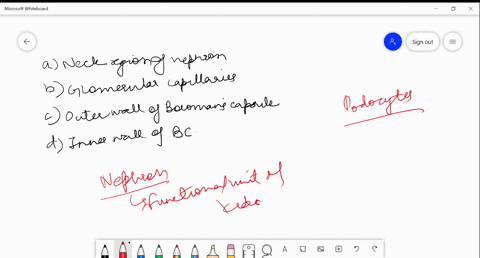 Microsoft Whiteboard
Sign out
a) Neck region of nephron
b) Glomerular capillaries
c) Outer wall of Bowman's capsule
d) Inner wall of BC
Podocytes
Nephron
↳ functional unit of